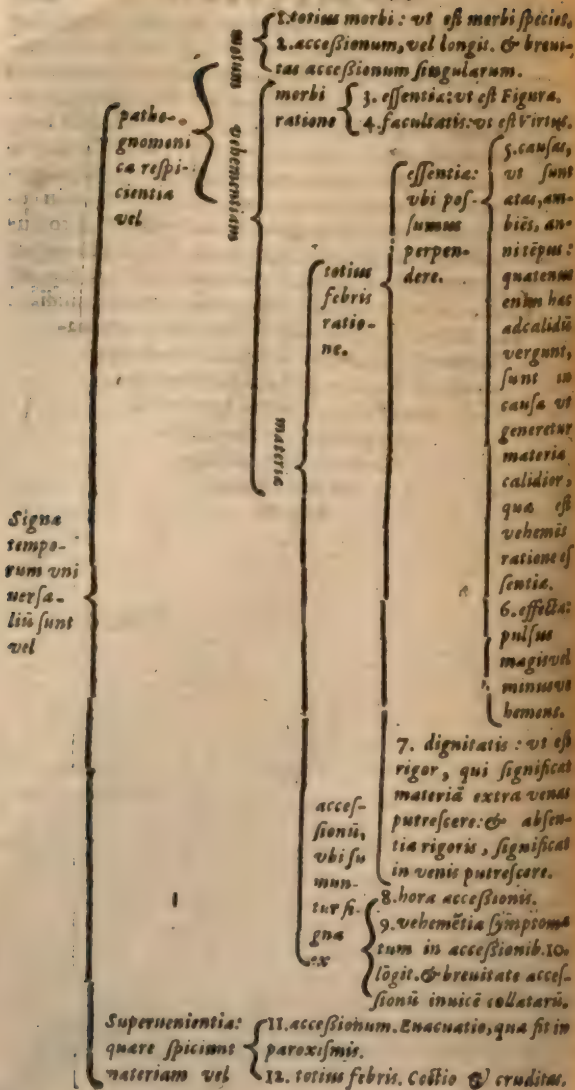 Signa
tempo-
rum vni
uersa-
liũ sunt
vel
patho-
gnomoni
ca respi-
cientia
vel
motum
1. totius morbi: vt est morbi species.
2. accessionum, vel longit. & breui-
tas accessionum singularum.
vehementiam
morbi
ratione
3. essentia: vt est Figura.
4. facultatis: vt est Virtus.
materia
totius
febris
ratio-
ne.
essentia:
vbi pos-
sumus
perpen-
dere.
5. causas,
vt sunt
ætas, am-
biẽs, an-
ni tẽpus:
quatenus
enim hæc
ad calidũ
vergunt,
sunt in
causa vt
generetur
materia
calidior,
qua est
vehemẽs
ratione es
sentiæ.
6. effecta:
pulsus
magis vel
minus ve
hemens.
7. dignitatis: vt est
rigor, qui significat
materiã extra venas
putrescere: & absen-
tia rigoris, significat
in venis putrescere.
acces-
sionũ,
vbi su
mun-
tur si-
gna
ex
8. hora accessionis.
9. vehemẽtia symptoma
tum in accessionib. 10.
lõgit. & breuitate acces-
sionũ inuicẽ collatarũ.
Superuenientia:
quare spiciunt
materiam vel
11. accessionum. Euacuatio, quæ fit in
paroxismis.
12. totius febris. Coctio & cruditas.